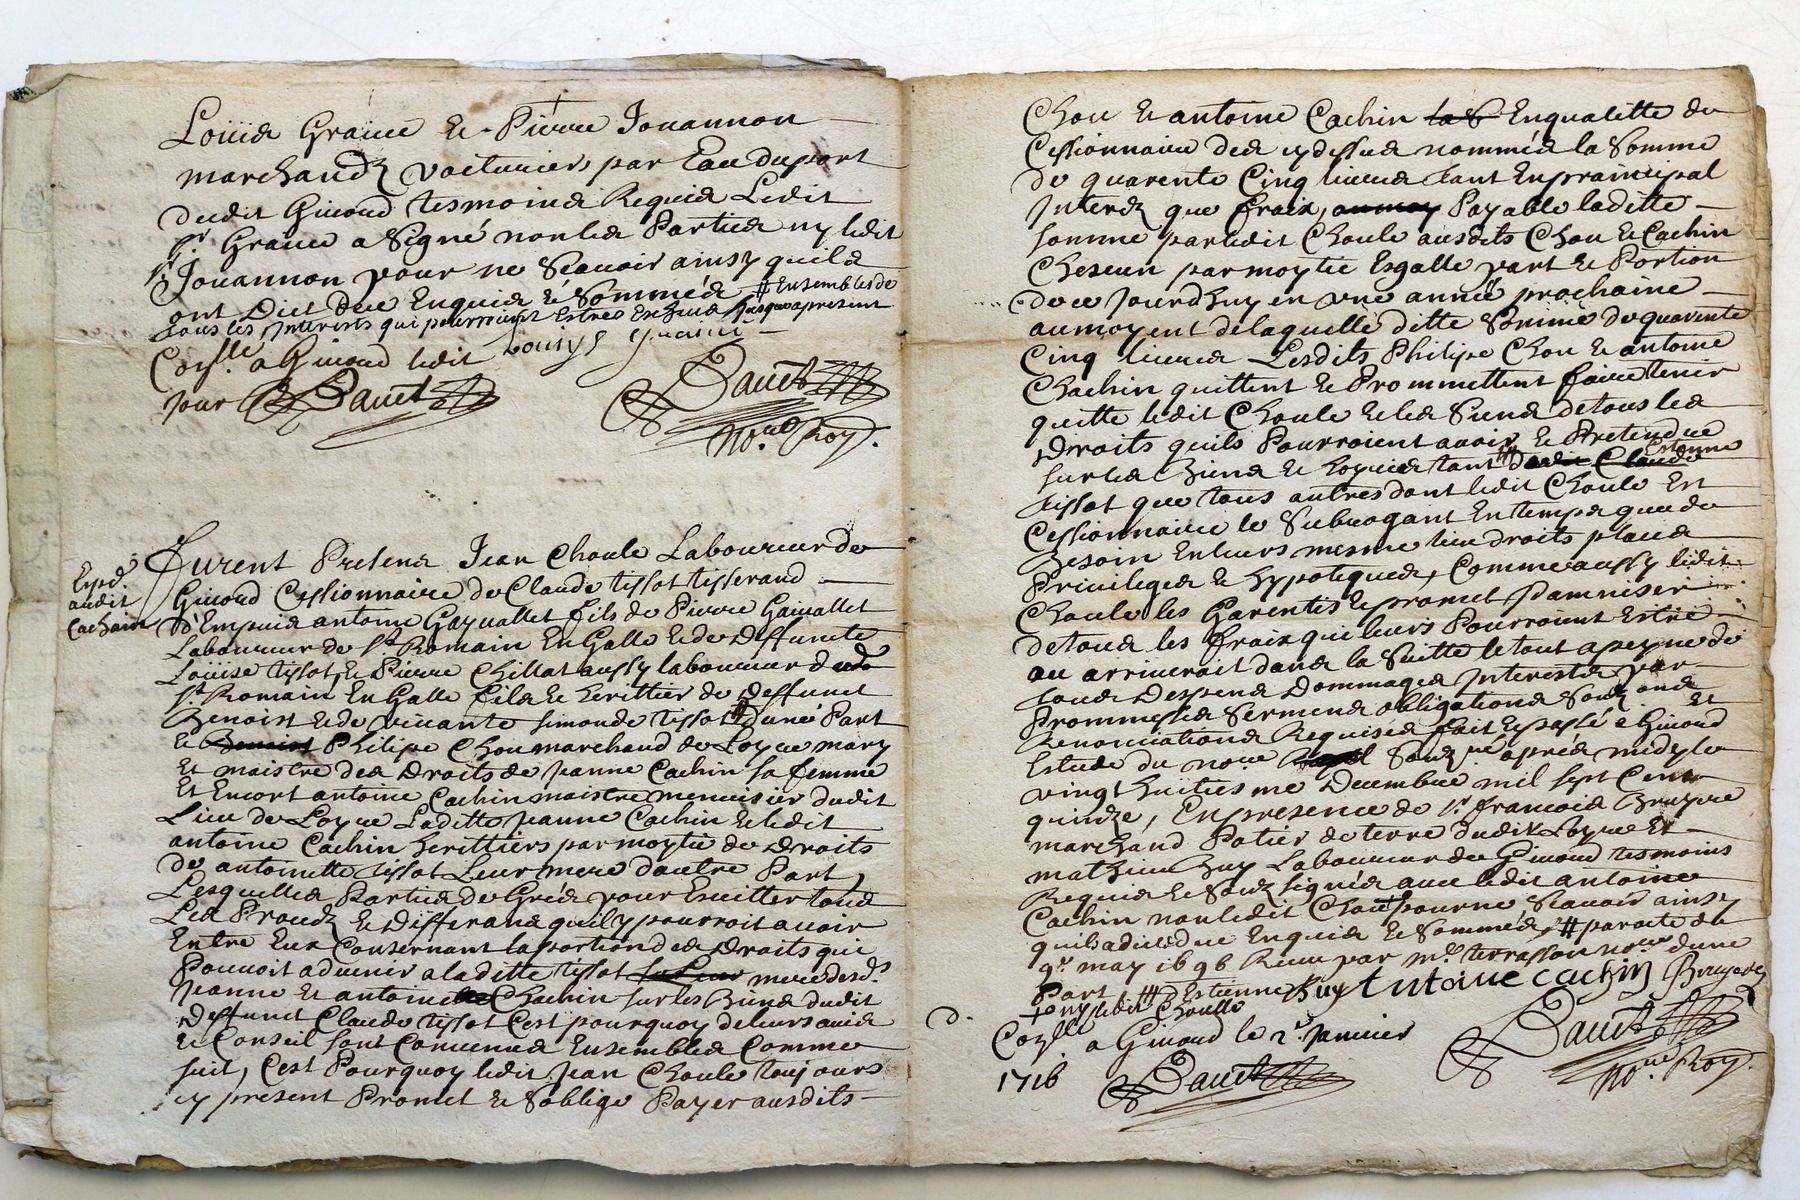 Loüis Graüee Et Pierre Jouannon
marchandz voituriers par Eau du port
dudit Giuord tesmoins Requis Ledit
sr. Graüee a Signé non les Parties ny ledit
Jouannon pour ne Scauoir ainsy quils
ont Dict Due Enquis & Sommés # Ensembles de
tous les Interests qui pourroient Estre Exigés Jusques apresent
Louys
Coslle. a Giuord ledit
jour Dauet
Dauet
No.re Roy.
Furent Presens Jean Choule Laboureur de
Giuord Cessionnaire de Claude tissot tisserand
Expd.
audit
Cachain
D'Empuis antoine Gayuallet fils de Pierre Gaiuallet
Laboureur de St. Romain En Galle & de Deffuncte
Loüise tissot, Et Pierre Chillat aussy laboureur dudt
St. Romain En Galle fils Et herittier de Deffunct
Benoist & de viuante simonde tissot # dune Part
Et Benoist Philipe Chou marchand de Loyre mary
Et maistre des Droits de Jeanne Cachin sa femme
Et Encort antoine Cachin maistre menuisier dudit
Lieu de Loyre Laditte Jeanne Cachin Et ledit
antoine Cachin herittiers par moytie de Droits
de antoinette tissot Leur mere d'autre Part,
Lesquelles Parties de Grés pour Euitter tous
Les Procedz Et Differans quil y pourroit auoir
Entre Eux Consernant la portion des Droits qui
Pouuoit aduenir a laditte tissot mere desds.
Jeanne Et antoine Chachin sur les Biens dudit
Deffunct Claude tissot Cest pourquoy de leurs auis
Et Conseil sont Conuenus Ensembles Comme
suit, Cest Pourquoy ledit Jean Choule toujours
cy present Promet Et soblige Payer ausdits
Chou Et antoine Cachin Enqualitte de
Cessionnaire des cydessus nommés la Somme
de quarente Cinq liures tant En prainsipal
Interdz que fraix, Payable laditte
somme par ledit Choule ausdits Chou Et Cachin
Chescun par moytie Esgalle part Et Portion
de ce jourdhuy en vne année prochaine
au moyent de laquelle ditte Somme de quarente
Cinq liures Lesdits Philipe Chou Et antoine
Chachin quittent Et Prommettent faire tenir
quitte ledit Choule Et les Siens de tous les
Droits quils Pourroient auoir Et Pretendre
sur les Biens Et hoyries tant dudit Claude Estienne
tissot que tous autres dont ledit Choule Est
Cessionnaire le Subrogant En temps que de
Besoin En leurs mesme lieu droits places
Priuileges Et hypoteques, Comme aussy ledit
Choule les Garentis Et promet Damniser
de tous les fraix qui leurs Pourroient Estre
ou arriuerait dans la Suitte le tout a peyne de
tous Despens Dommages Interests par
Prommesses Sermens obligations Soubz ons Et
Renonciations Requises fait Et passé a Giuord
Estude du nore Soubzne apres midy le
vingt huitiesme Decembre mil sept Cent
quinze, En presence de sr. francois Bruyere
marchand Potier de terre dudit Loyre Et
mathieu Buy Laboureur de Giuord tesmoins
Requis Et Soubz signés auec ledit antoine
Cachin non ledit Chou + pour ne Scauoir ainsy
quils adict due Enquis Et Sommés, # par acte du
9e. may 1696 Receu par me. terrasson nore dune
Part, ## Estienne Buy Antoine Cachin Bruyere
+ ny ledit Choulle
D.
Coslle a Giuord le 2e. Januier
1716
Dauet
Dauet
No.re Roy.